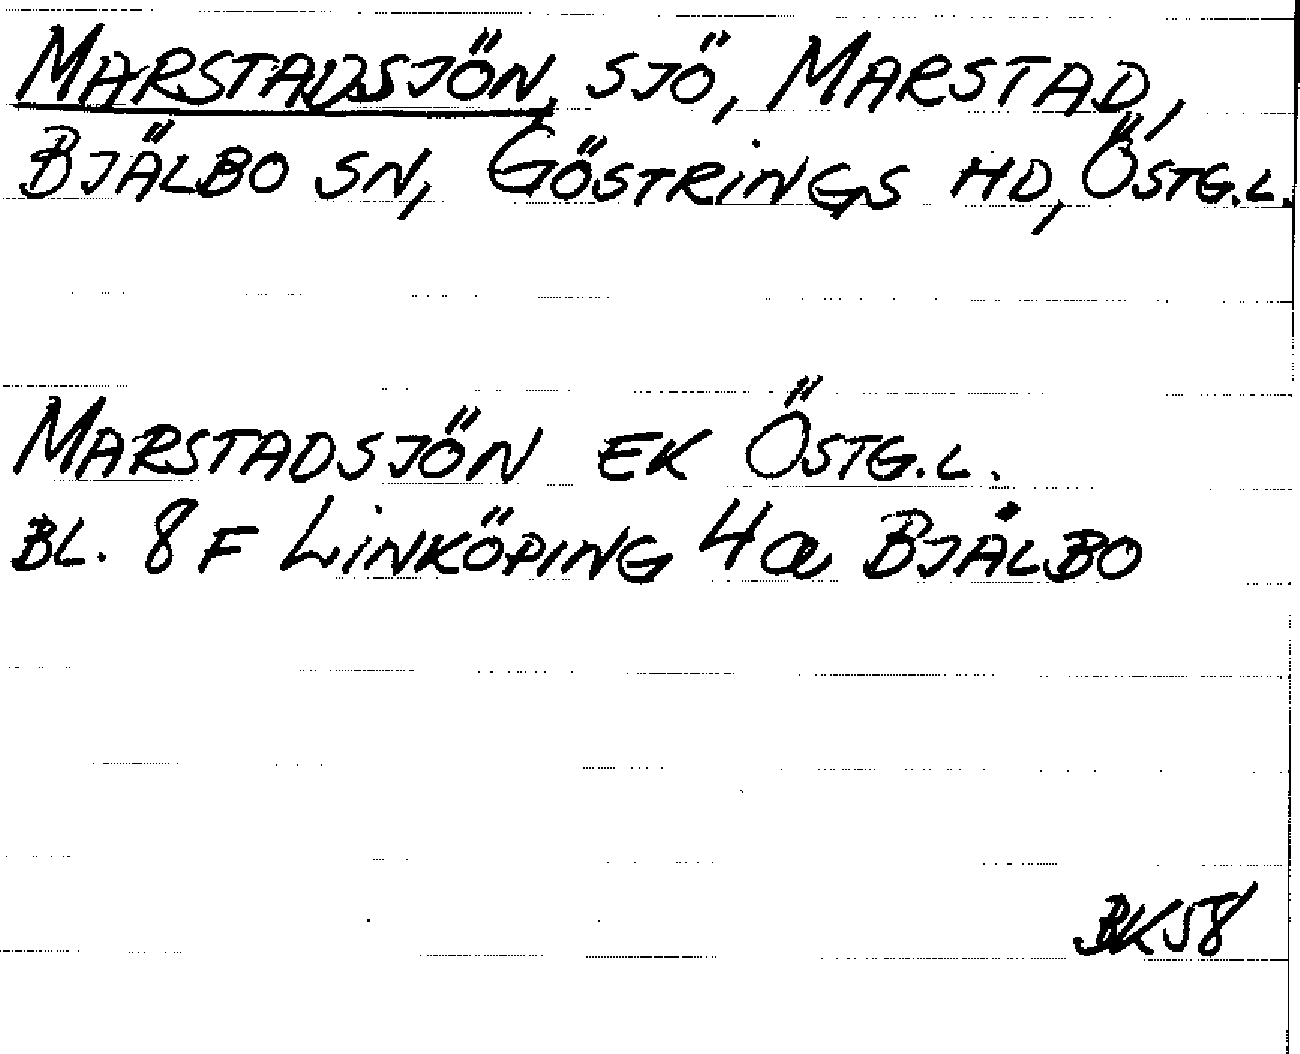 MARSTADSJÖN, SJÖ, MARSTAD,
BJÄLBO SN, GÖSTRINGS HD, ÖSTG.L.
MARSTADSJÖN EK ÖSTG.L.
BL. 8 F LINKÖPING 4a BJÅLBO
BK58